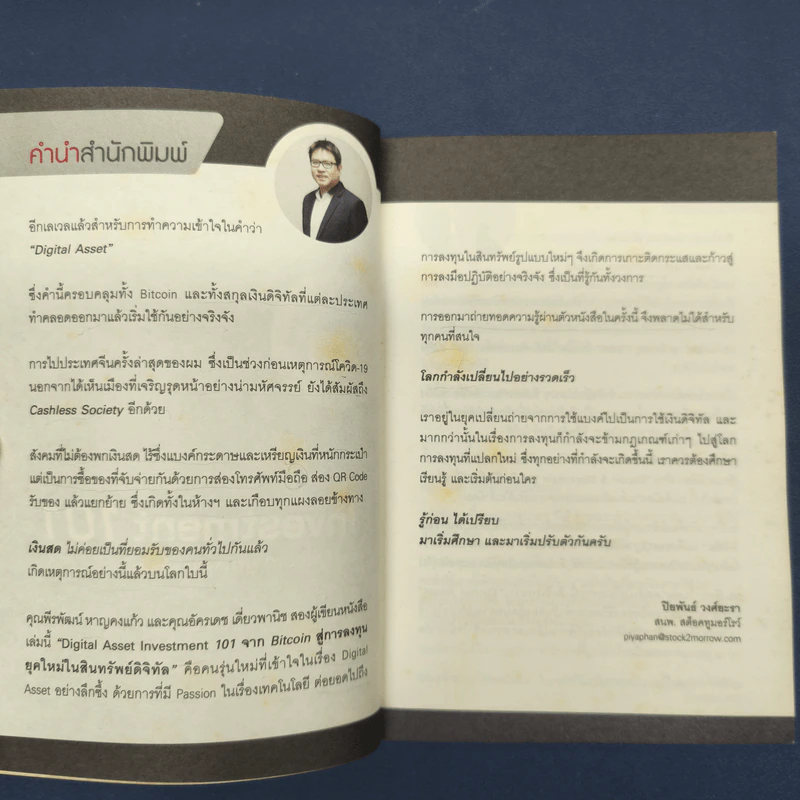 คำนำสำนักพิมพ์
อีกเลเวลแล้วสำหรับการทำความเข้าใจในคำว่า
“Digital Asset”
ซึ่งคำนี้ครอบคลุมทั้ง Bitcoin และทั้งสกุลเงินดิจิทัลที่แต่ละประเทศ
ทำคลอดออกมาแล้วเริ่มใช้กันอย่างจริงจัง
การไปประเทศจีนครั้งล่าสุดของผม ซึ่งเป็นช่วงก่อนเหตุการณ์โควิด-19
นอกจากได้เห็นเมืองที่เจริญรุดหน้าอย่างน่ามหัศจรรย์ ยังได้สัมผัสถึง
Cashless Society อีกด้วย
สังคมที่ไม่ต้องพกเงินสด ไร้ซึ่งแบงค์กระดาษและเหรียญเงินที่หนักกระเป๋า
แต่เป็นการซื้อของที่จับจ่ายกันด้วยการส่องโทรศัพท์มือถือ ส่อง QR Code
รับของ แล้วแยกย้าย ซึ่งเกิดทั้งในห้างฯ และเกือบทุกแผงลอยข้างทาง
เงินสด ไม่ค่อยเป็นที่ยอมรับของคนทั่วไปกันแล้ว
เกิดเหตุการณ์อย่างนี้แล้วบนโลกใบนี้
คุณพีรพัฒน์ หาญคงแก้ว และคุณอัครเดช เดี่ยวพานิช สองผู้เขียนหนังสือ
เล่มนี้ “Digital Asset Investment 101 จาก Bitcoin สู่การลงทุน
ยุคใหม่ในสินทรัพย์ดิจิทัล” คือคนรุ่นใหม่ที่เข้าใจในเรื่อง Digital
Asset อย่างลึกซึ้ง ด้วยการที่มี Passion ในเรื่องเทคโนโลยี ต่อยอดไปถึง
การลงทุนในสินทรัพย์รูปแบบใหม่ๆ จึงเกิดการเกาะติดกระแสและก้าวสู่
การลงมือปฏิบัติอย่างจริงจัง ซึ่งเป็นที่รู้กันทั้งวงการ
การออกมาถ่ายทอดความรู้ผ่านตัวหนังสือในครั้งนี้ จึงพลาดไม่ได้สำหรับ
ทุกคนที่สนใจ
โลกกำลังเปลี่ยนไปอย่างรวดเร็ว
เราอยู่ในยุคเปลี่ยนถ่ายจากการใช้แบงค์ไปเป็นการใช้เงินดิจิทัล และ
มากกว่านั้นในเรื่องการลงทุนก็กำลังจะข้ามกฎเกณฑ์เก่าๆ ไปสู่โลก
การลงทุนที่แปลกใหม่ ซึ่งทุกอย่างที่กำลังจะเกิดขึ้นนี้ เราควรต้องศึกษา
เรียนรู้ และเริ่มต้นก่อนใคร
รู้ก่อน ได้เปรียบ
มาเริ่มศึกษา และมาเริ่มปรับตัวกันครับ
ปิยพันธ์ วงศ์ยะรา
สนพ. สต็อคทูมอร์โรว์
piyaphan@stock2morrow.com